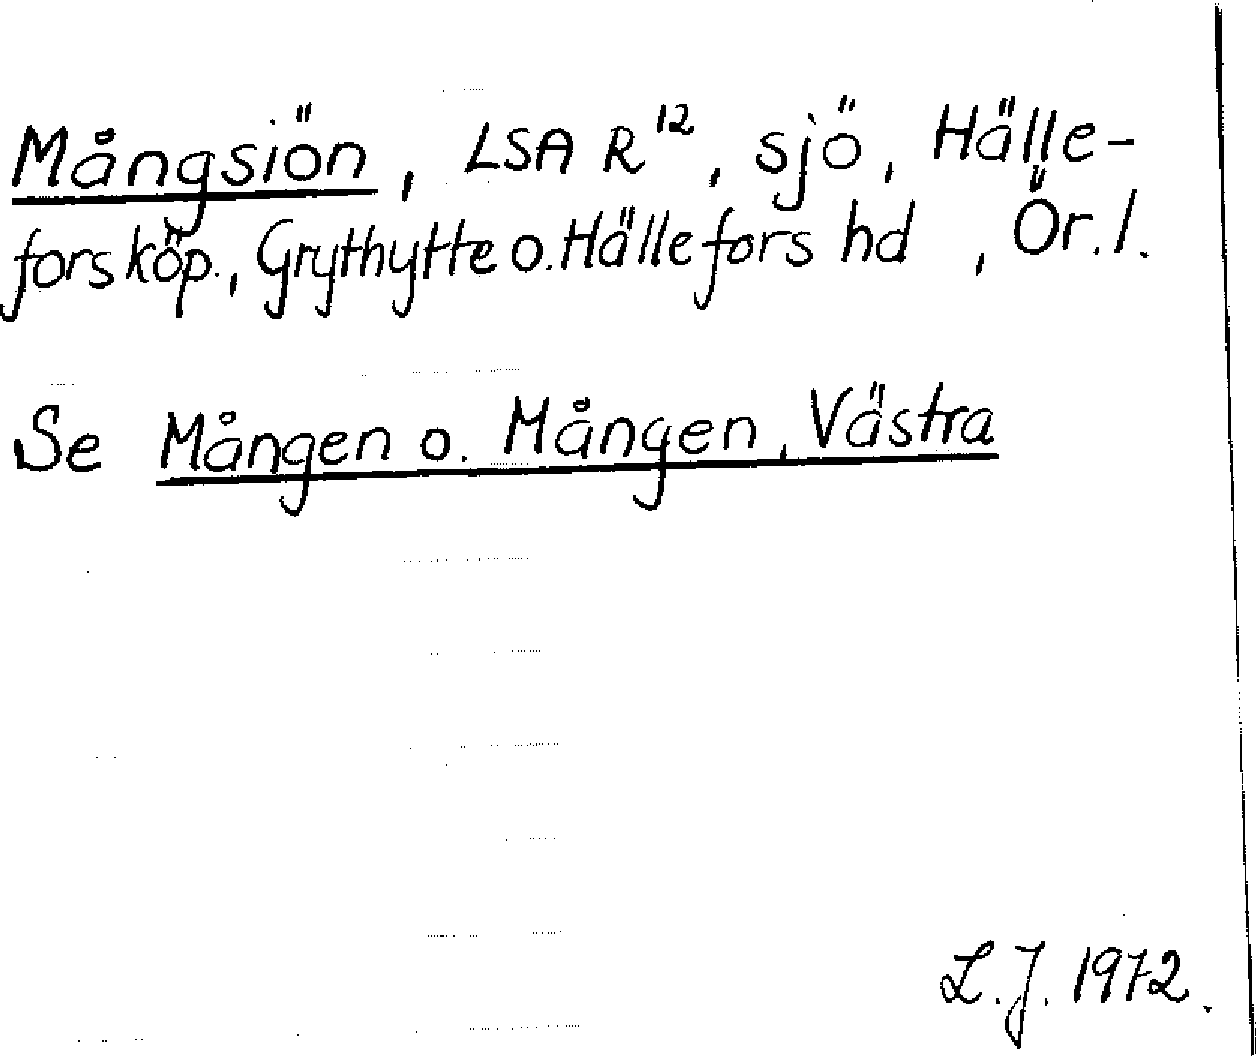 Mångsiön, LSA R¹², sjö, Hälle-
fors köp., Grythytte o. Hällefors hd, Ör. l.
Se Mången o. Mången, Västra
L. J. 1972.